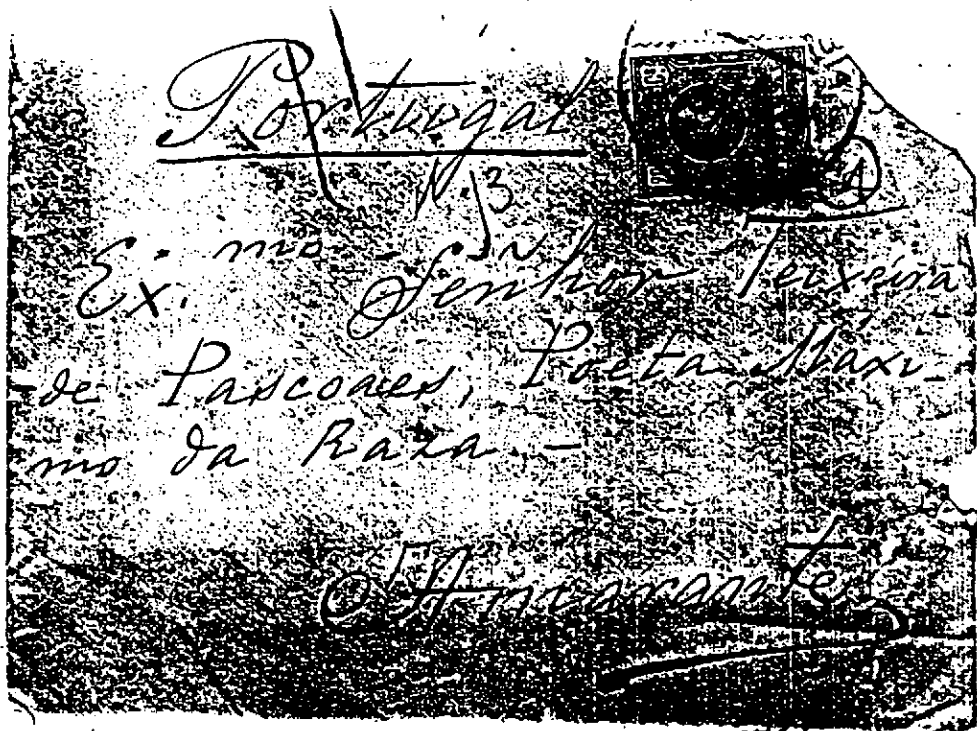 Portugal
N. 3
Ex.mo Senhor Teixeira
de Pascoaes, Poeta Máxi-
mo da Raza. -
Amarante